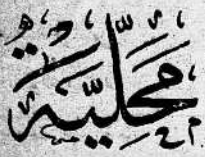 مَحَلِّيَّة